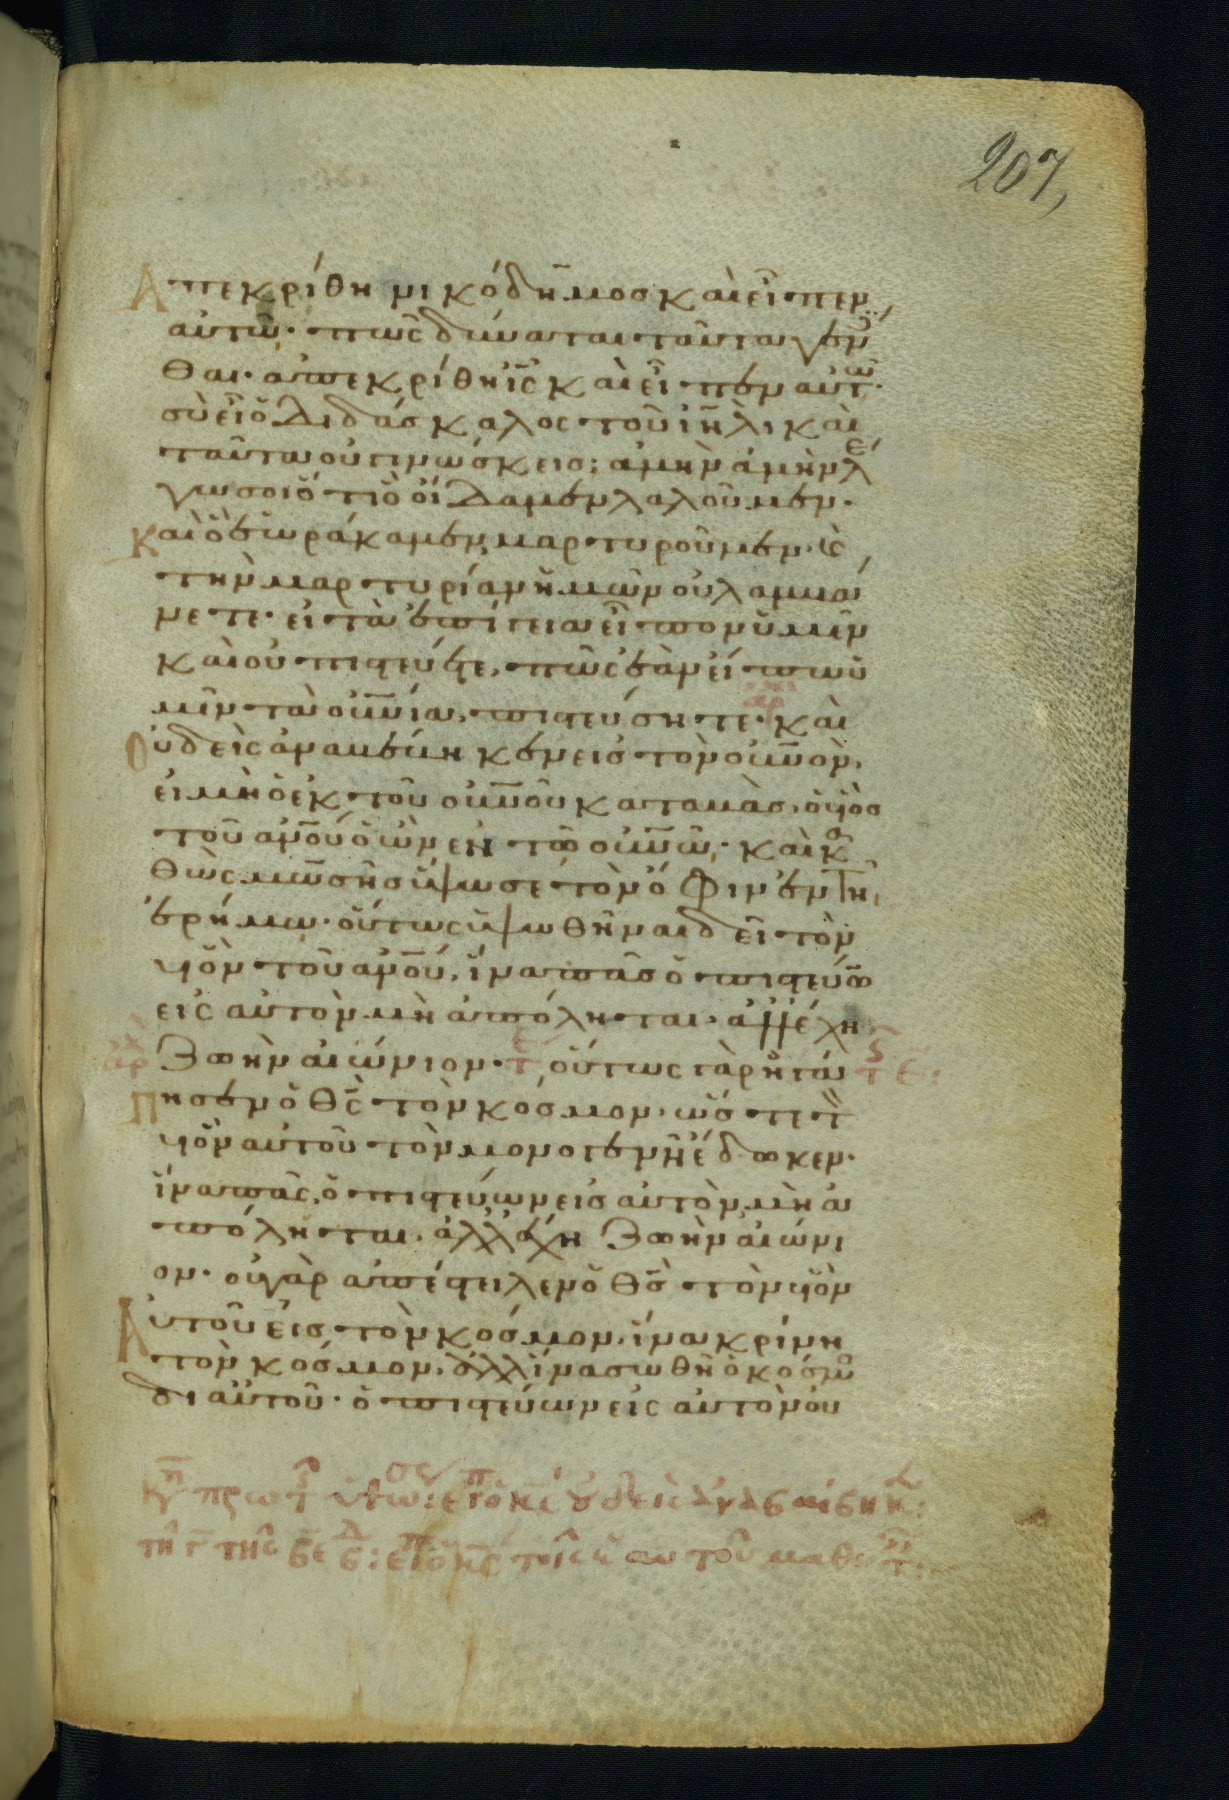 207
Ἀπεκρίθη νικόδημος καὶ εἶπεν
αὐτῶ· πῶς δύναται ταῦτα γεν
θαι· ἀπεκρίθη ις καὶ εἶπεν αὐτ
σὺ εἶ ὁ διδάσκαλος τοῦ ιηλ· καὶ
ταῦτα οὐ γινώσκεις; ἀμὴν ἀμὴν λέ
γω σοι ὅτι ὃ οἴδαμεν λαλοῦμεν·
καὶ ὃ ἑωράκαμεν μαρτυροῦμεν· κ
τὴν μαρτυρίαν ἡμῶν οὐ λαμβά
νετε· εἰ τὰ ἐπίγεια εἶπον ὑμῖν
καὶ οὐ πιστεύετε, πῶς ἐὰν εἴπω ὑ
μῖν τὰ οὐνια, πιστεύσητε· καὶ
οὐδεὶς ἀναβέβηκεν εἰς τὸν οὐνον,
εἰ μὴ ὁ ἐκ τοῦ οὐνου καταβὰς, ὁ υιος
τοῦ ανου ὁ ὢν ἐν τῶ οὐνω· καὶ κα
θὼς μωσῆς ὕψωσε τὸν ὄφιν ἐν τῆ
ἐρήμω· οὕτως ὑψωθῆναι δεῖ τὸν
υιον τοῦ ανου, ἵνα πᾶς ὁ πιστεύω
εἰς αὐτὸν μὴ ἀπόληται· ἀλλ' ἔχη
ζωὴν αἰώνιον· οὕτως γὰρ ἠγά
πησεν ὁ θς τὸν κόσμον, ὥστε τ
υιον αὐτοῦ τὸν μονογενῆ ἔδωκεν·
ἵνα πᾶς ὁ πιστεύων εἰς αὐτὸν μὴ ἀ
πόληται· ἀλλ' ἔχη ζωὴν αἰώνι
ον· οὐ γὰρ ἀπέστειλεν ὁ θς τὸν υιον
αὐτοῦ εἰς τὸν κόσμον, ἵνα κρίνη
τὸν κόσμον, ἀλλ' ἵνα σωθῆ ὁ κόσμ
δι' αὐτοῦ· ὁ πιστεύων εἰς αὐτὸν οὐ
εἶπ ὁ κς οὐδεὶς ἀναβέβηκ:
εἶπ ὁ κς τοῖς ἑαυτοῦ μαθητ: